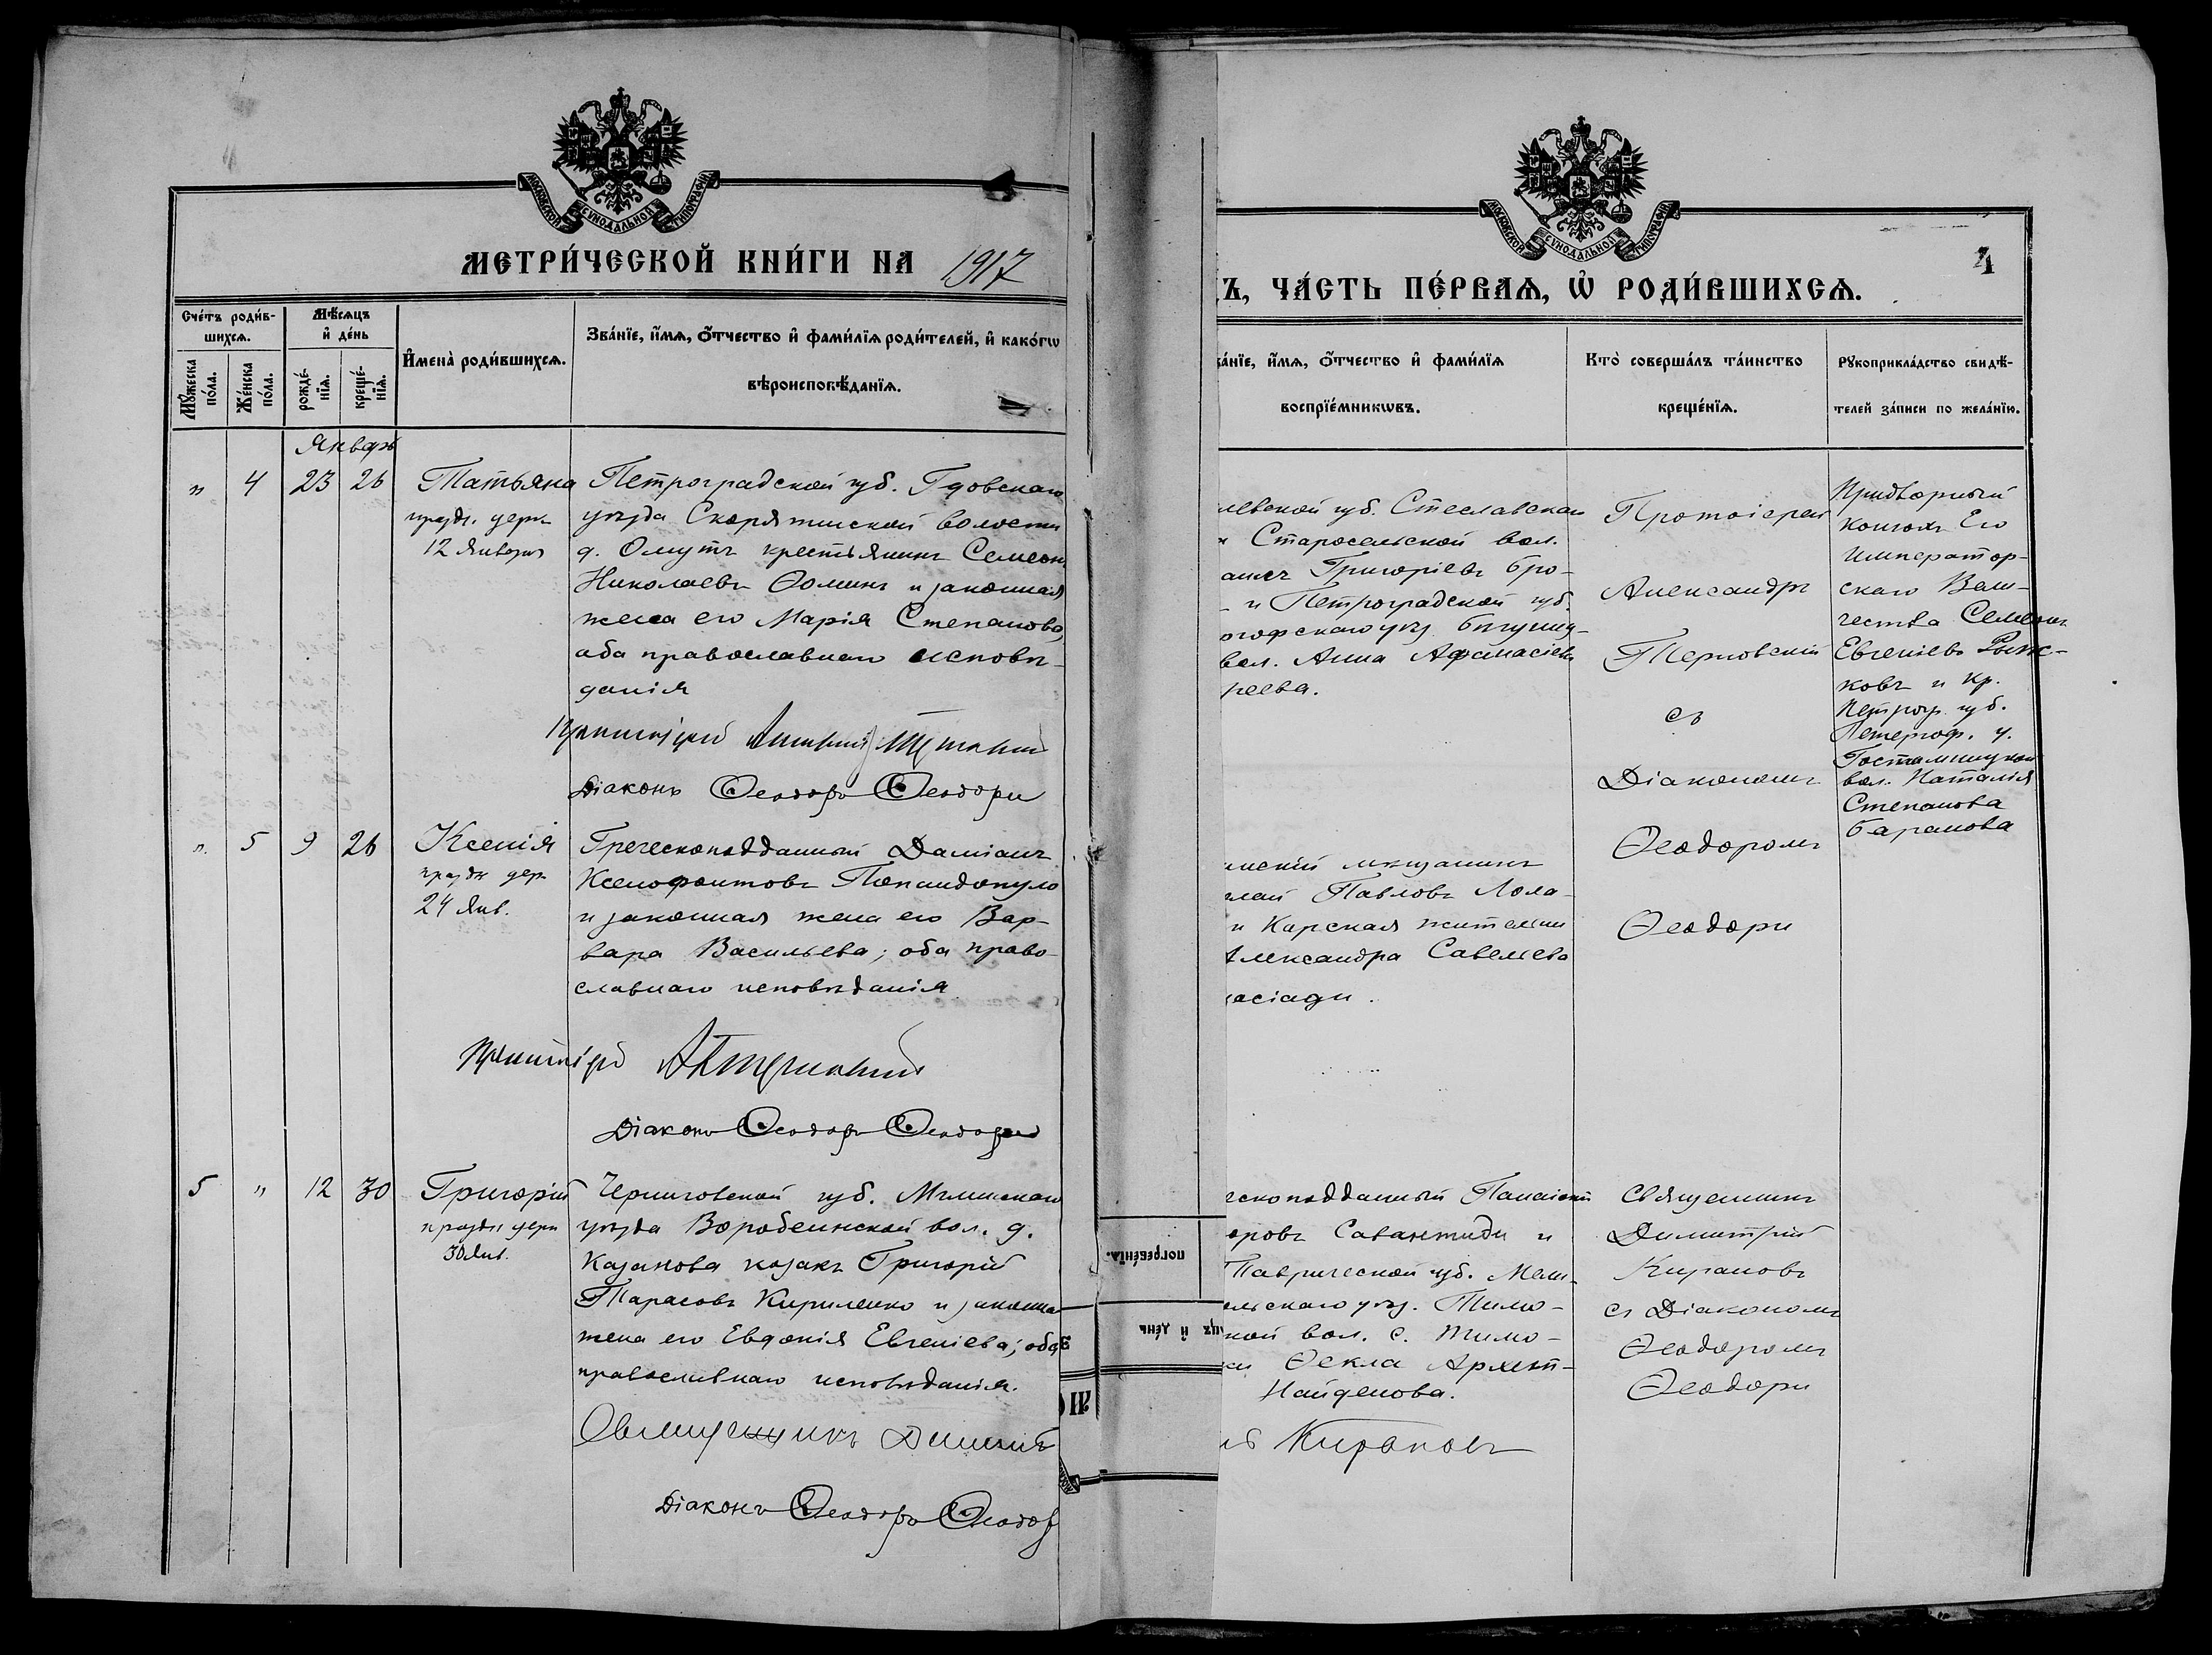 МОСКОВСКОЙ СѴНОДАЛЬНОЙ ТИПОГРАФІИ
МЕТРИ́ЧЕСКОЙ КНИ́ГИ НА 1917
Сче́тъ роди́в-
шихсѧ.
Мꙋ́жеска
по́ла.
Же́нска
по́ла.
Мѣ́сѧцъ
и҆ де́нь
рожде́-
нїѧ.
креще́-
нїѧ.
И҆мена̀ роди́вшихсѧ.
Зва́нїе, и҆́мѧ, ѻ҆́тчество и҆ фами́лїѧ роди́телей, и҆ како́гѡ
вѣроисповѣ́данїѧ.
Январь
" 4 23 26
Татьяна
12 Января
Петроградской губ. Гдовскаго
уѣзда Скорятинской волости
д. Омутъ крестьянинъ Семеонъ
Николаевъ Ѳоминъ и законная
жена его Марія Степанова,
оба православнаго исповѣ-
данія
Протоіерей
Діаконъ Ѳеодоръ Ѳеодори
" 5 9 26
Ксенія
24 Янв.
Греческоподданный Даміанъ
Ксенофонтовъ Попандопуло
и законная жена его Вар-
вара Васильева; оба право-
славнаго исповѣданія
Протоіерей
Діаконъ Ѳеодоръ Ѳеодори
5 " 12 30
Григорій
30 Янв.
Черниговской губ. Мглинскаго
уѣзда Воробеинской вол. д.
Казанова козакъ Григорій
Тарасовъ Кириленко и законная
жена его Евдокія Евгеніева; оба
православнаго исповѣданія.
Священникъ Димитр
Діаконъ Ѳеодоръ Ѳеодор
погребе́нїѧ.
и҆ де́нь
МОСКОВСКОЙ СѴНОДАЛЬНОЙ ТИПОГРАФІИ
4
Ъ, ЧА́СТЬ ПЕ́РВАѦ, Ѡ҆ РОДИ́ВШИХСѦ.
а́нїе, и҆́мѧ, ѻ҆́тчество и҆ фами́лїѧ
воспрїе́мникѡвъ.
Кто̀ соверша́лъ та́инство
креще́нїѧ.
Рꙋкоприкла́дство свидѣ́-
телей за́писи по жела́нїю.
левской губ.
Старосельской вол.
Григоріевъ Бро-
и Петроградской губ.
вол. Анна Аѳанасіева
реева.
Протоіерей
Александръ
Терновскій
съ
Діакономъ
Ѳеодоромъ
Ѳеодори
Придворный
конюхъ Его
Император-
скаго Вели-
чества Семеонъ
Евгеніевъ Рыж-
ковъ и кр.
Петрогр. губ.
Петергоф. у.
Гостилицкой
вол. Наталія
Степанова
Баранова
мѣщанинъ
лай Павловъ Лола-
и Карская жительни
Александра Савельева
асіади.
ескоподданный Панаіотъ
оровъ Савантиди и
Таврической губ. Мели-
ольскаго уѣз. Тимо-
ской вол. с. Тимо-
Ѳекла Архип-
Найденова.
Кирановъ
Священникъ
Димитрій
Кирановъ
съ Діакономъ
Ѳеодоромъ
Ѳеодори